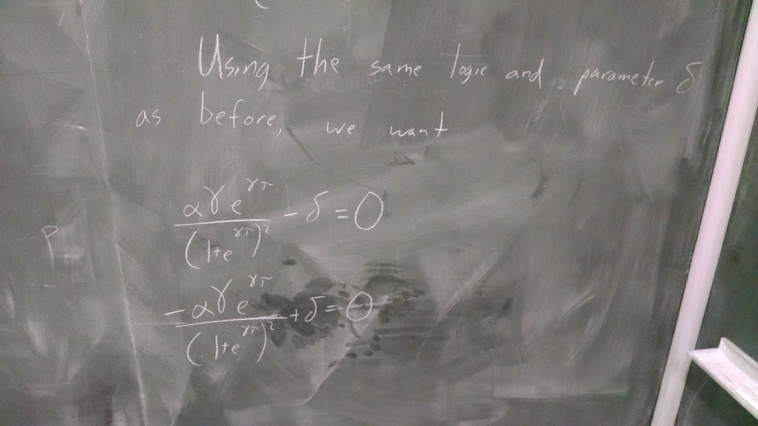 Using the same logic and parameter δ
as before, we want
αγe^{γπ}/(1+e^{γπ})² - δ = 0
P
-αγe^{γπ}/(1+e^{γπ})² + δ = 0